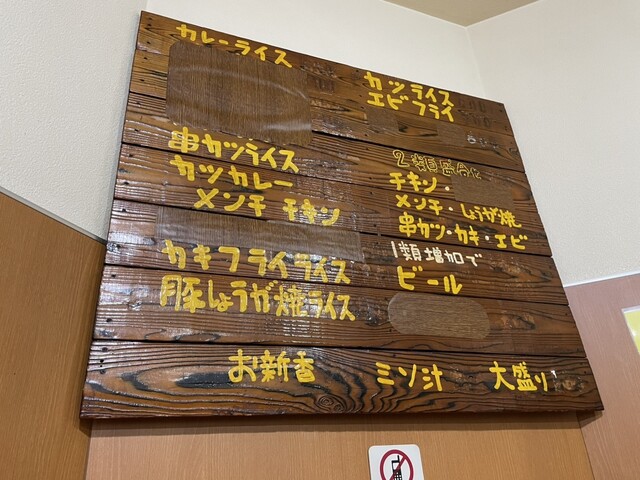 カレーライス
串カツライス
カツカレー
メンチ チキン
カキフライライス
豚しょうが焼ライス
カツライス
エビフライ
2類盛合せ
チキン・
メンチ・しょうが焼
串カツ・カキ・エビ
1類増加で
ビール
お新香
ミソ汁
大盛り